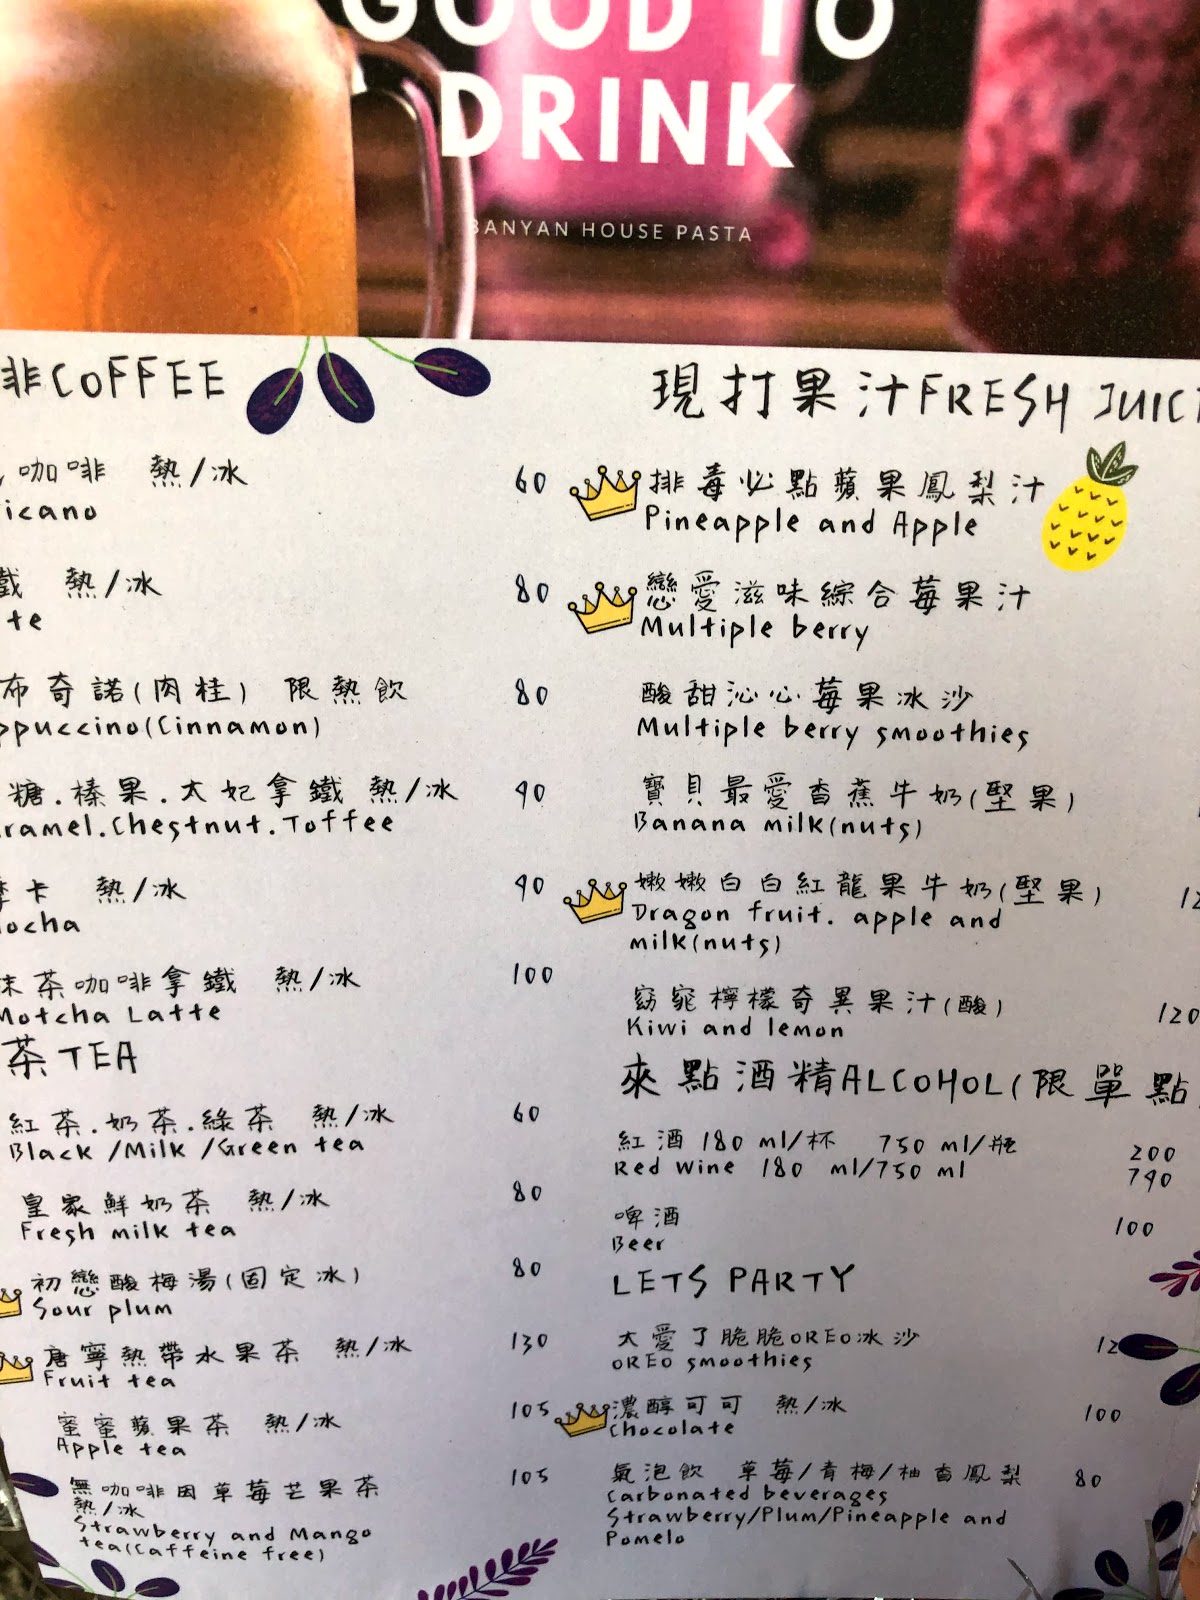 GOOD TO
DRINK
BANYAN HOUSE PASTA
啡COFFEE
咖啡 熱/冰 60
icano
鐵 熱/冰 80
te
布奇諾(肉桂) 限熱飲 80
ppuccino(Cinnamon)
糖.榛果.太妃拿鐵 熱/冰 90
ramel.Chestnut.Toffee
摩卡 熱/冰 90
ocha
抹茶咖啡拿鐵 熱/冰 100
Motcha Latte
茶TEA
紅茶.奶茶.綠茶 熱/冰 60
Black /Milk /Green tea
皇家鮮奶茶 熱/冰 80
Fresh milk tea
初戀酸梅湯(固定冰) 80
Sour plum
唐寧熱帶水果茶 熱/冰 130
Fruit tea
蜜蜜蘋果茶 熱/冰 105
Apple tea
無咖啡因草莓芒果茶 105
熱/冰
Strawberry and Mango
tea(Caffeine free)
現打果汁FRESH JUIC
排毒必點蘋果鳳梨汁
Pineapple and Apple
戀愛滋味綜合莓果汁
Multiple berry
酸甜沁心莓果冰沙
Multiple berry smoothies
寶貝最愛香蕉牛奶(堅果)
Banana milk(nuts)
嫩嫩白白紅龍果牛奶(堅果) 12
Dragon fruit. apple and
milk(nuts)
窈窕檸檬奇異果汁(酸) 120
Kiwi and lemon
來點酒精ALCOHOL(限單點
紅酒 180 ml/杯 750 ml/瓶 200
Red Wine 180 ml/750 ml 790
啤酒 100
Beer
LETS PARTY
太愛了脆脆OREO冰沙 12
OREO smoothies
濃醇可可 熱/冰 100
Chocolate
氣泡飲 草莓/青梅/柚香鳳梨 80
Carbonated beverages
Strawberry/Plum/Pineapple and
Pomelo